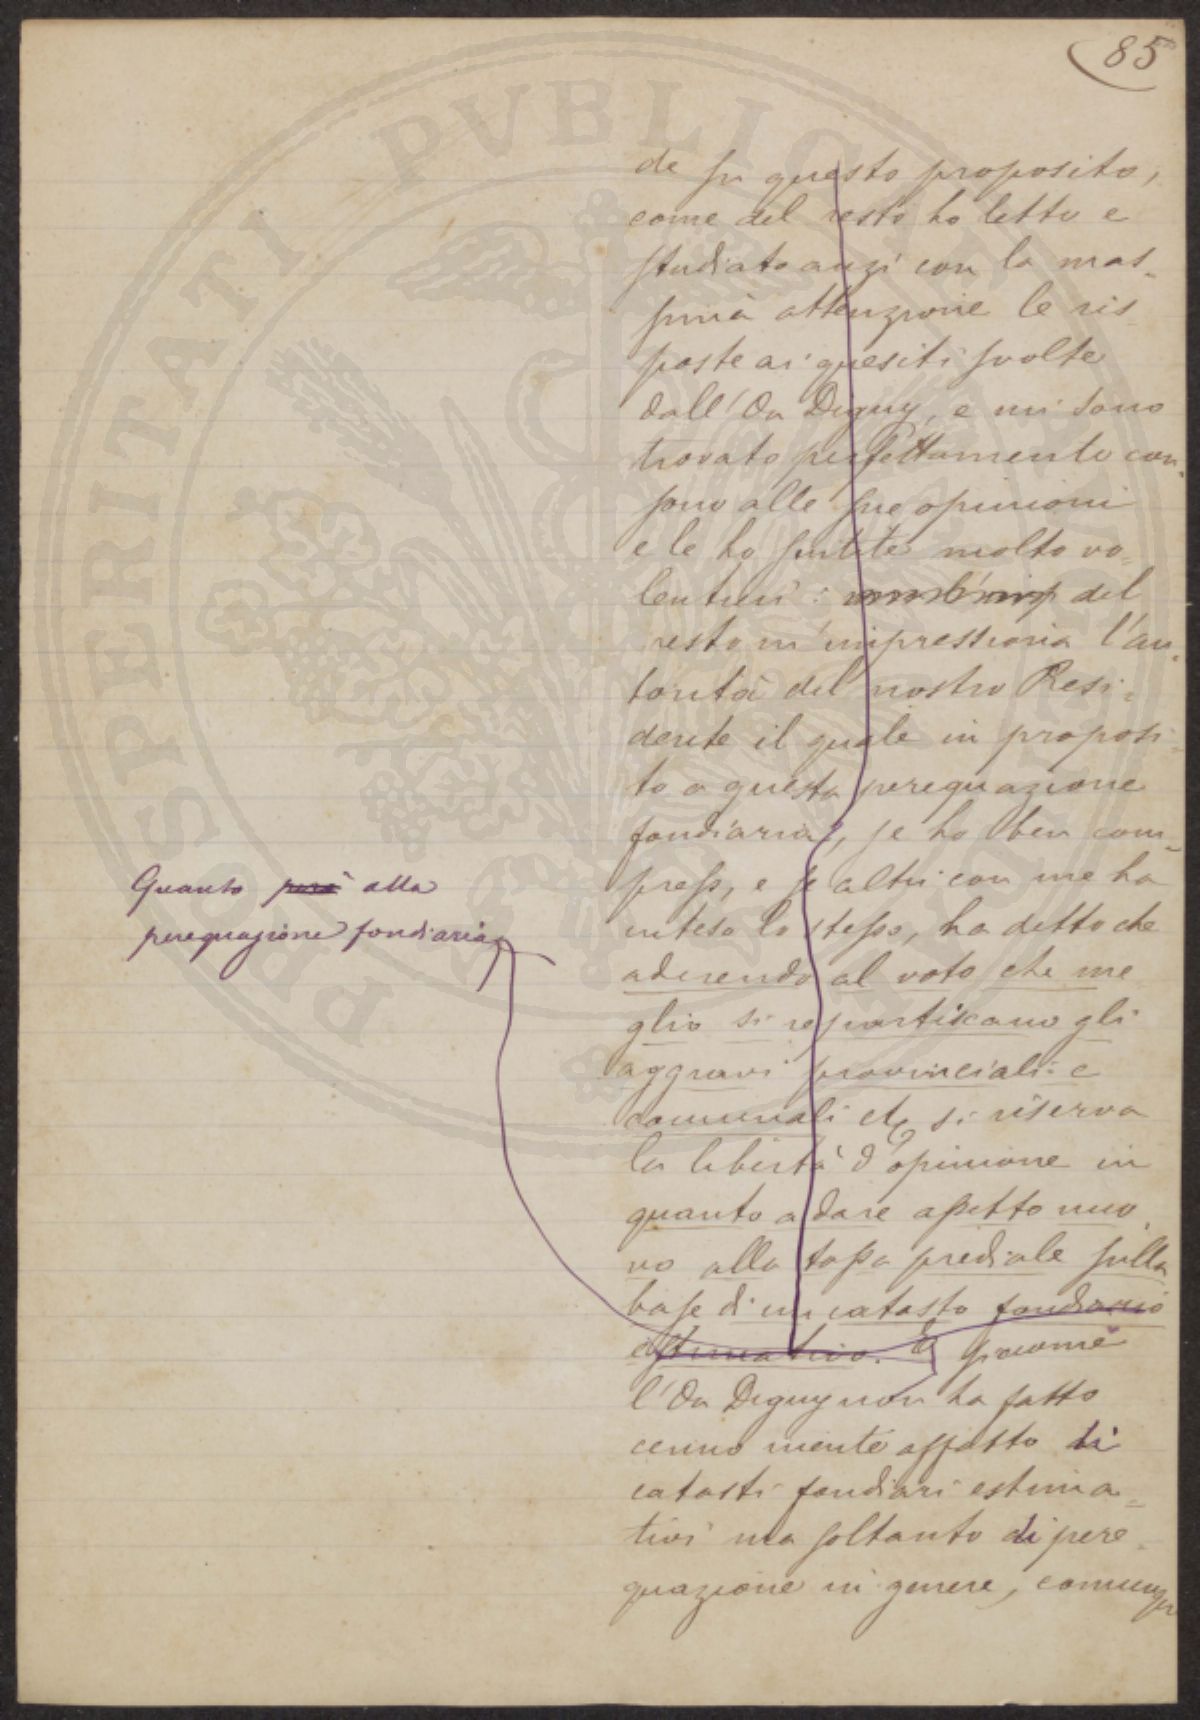 85
de su questo proposito,
come del resto ho letto e
studiato anzi con la mas-
sima attenzione le ris
poste ai quesiti svolte
dall'On Digny, e mi sono
trovato perfettamente con-
sono alle sue opinioni
e le ho sentite molto vo-
lentieri: del
resto m'impressiona l'au-
torità del nostro Presi-
dente il quale in proposi-
to a questa perequazione
fondiaria, se ho ben com-
preso, e se altri con me ha
inteso lo stesso, ha detto che
aderendo al voto che me
glio si repartiscano gli
aggravi provinciali e
comunali etc si riserva
la libertà d'opinione in
quanto a dare assetto nuo
vo alla tassa prediale sulla
base di un catasto fondiario
estimativo. E siccome
l'On Digny non ha fatto
cenno niente affatto di
catasti fondiari estima-
tivi ma soltanto di pere-
quazione in genere, comunque
Quanto però alla
perequazione fondiaria,
PROSPERITATI PVBLICAE